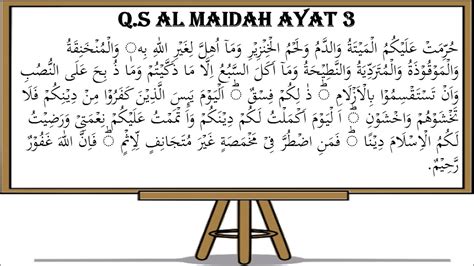 Q.S AL MAIDAH AYAT 3
حُرِّمَتْ عَلَيْكُمُ الْمَيْتَةُ وَالدَّمُ وَلَحْمُ الْخِنْزِيْرِ وَمَآ اُهِلَّ لِغَيْرِ اللّٰهِ بِهٖ وَالْمُنْخَنِقَةُ
وَالْمَوْقُوْذَةُ وَالْمُتَرَدِّيَةُ وَالنَّطِيْحَةُ وَمَآ اَكَلَ السَّبُعُ اِلَّا مَا ذَكَّيْتُمْ وَمَا ذُبِحَ عَلَى النُّصُبِ
وَاَنْ تَسْتَقْسِمُوْا بِالْاَزْلَامِۗ ذٰلِكُمْ فِسْقٌۗ اَلْيَوْمَ يَىِٕسَ الَّذِيْنَ كَفَرُوْا مِنْ دِيْنِكُمْ فَلَا
تَخْشَوْهُمْ وَاخْشَوْنِۗ اَلْيَوْمَ اَكْمَلْتُ لَكُمْ دِيْنَكُمْ وَاَتْمَمْتُ عَلَيْكُمْ نِعْمَتِيْ وَرَضِيْتُ
لَكُمُ الْاِسْلَامَ دِيْنًاۗ فَمَنِ اضْطُرَّ فِيْ مَخْمَصَةٍ غَيْرَ مُتَجَانِفٍ لِّاِثْمٍۙ فَاِنَّ اللّٰهَ غَفُوْرٌ
رَّحِيْمٌ.